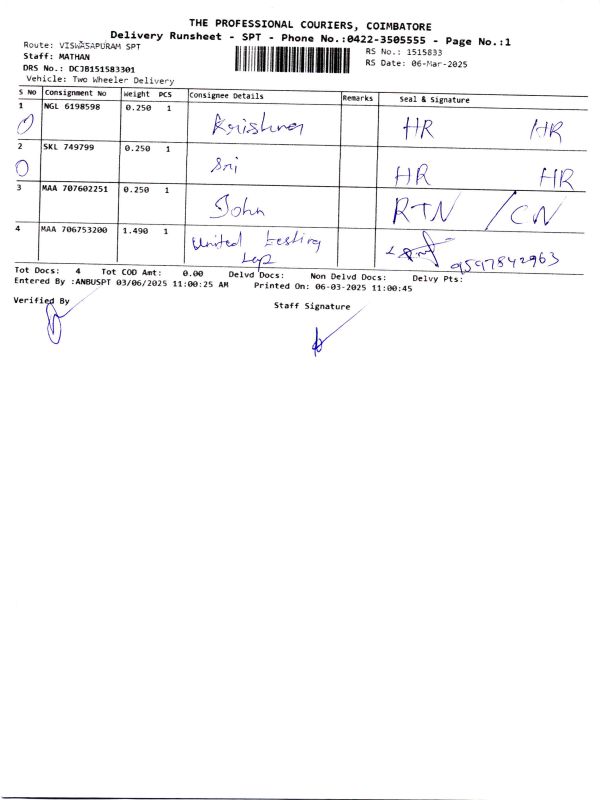 THE PROFESSIONAL COURIERS, COIMBATORE
Delivery Runsheet - SPT - Phone No.:0422-3505555 - Page No.:1
Route: VISWASAPURAM SPT
RS No.: 1515833
Staff: MATHAN
RS Date: 06-Mar-2025
DRS No.: DCJB151583301
Vehicle: Two Wheeler Delivery
S No Consignment No Weight PCS Consignee Details Remarks Seal & Signature
1 NGL 6198598 0.250 1 Krishna HR HR
2 SKL 749799 0.250 1 Sri HR HR
3 MAA 707602251 0.250 1 John RTN / CN
4 MAA 706753200 1.490 1 United testing 9597842963
Tot Docs: 4 Tot COD Amt: 0.00 Delvd Docs: Non Delvd Docs: Delvy Pts:
Entered By :ANBUSPT 03/06/2025 11:00:25 AM Printed On: 06-03-2025 11:00:45
Verified By
Staff Signature